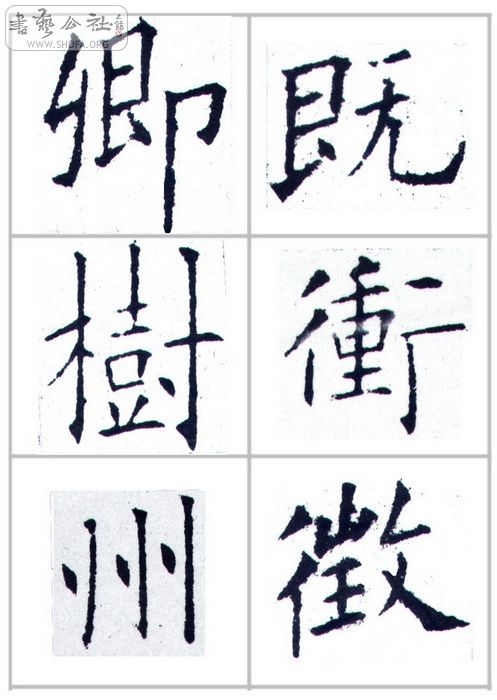 書藝公社
WWW.SHUFA.ORG
卿 既
樹 衝
州 徵